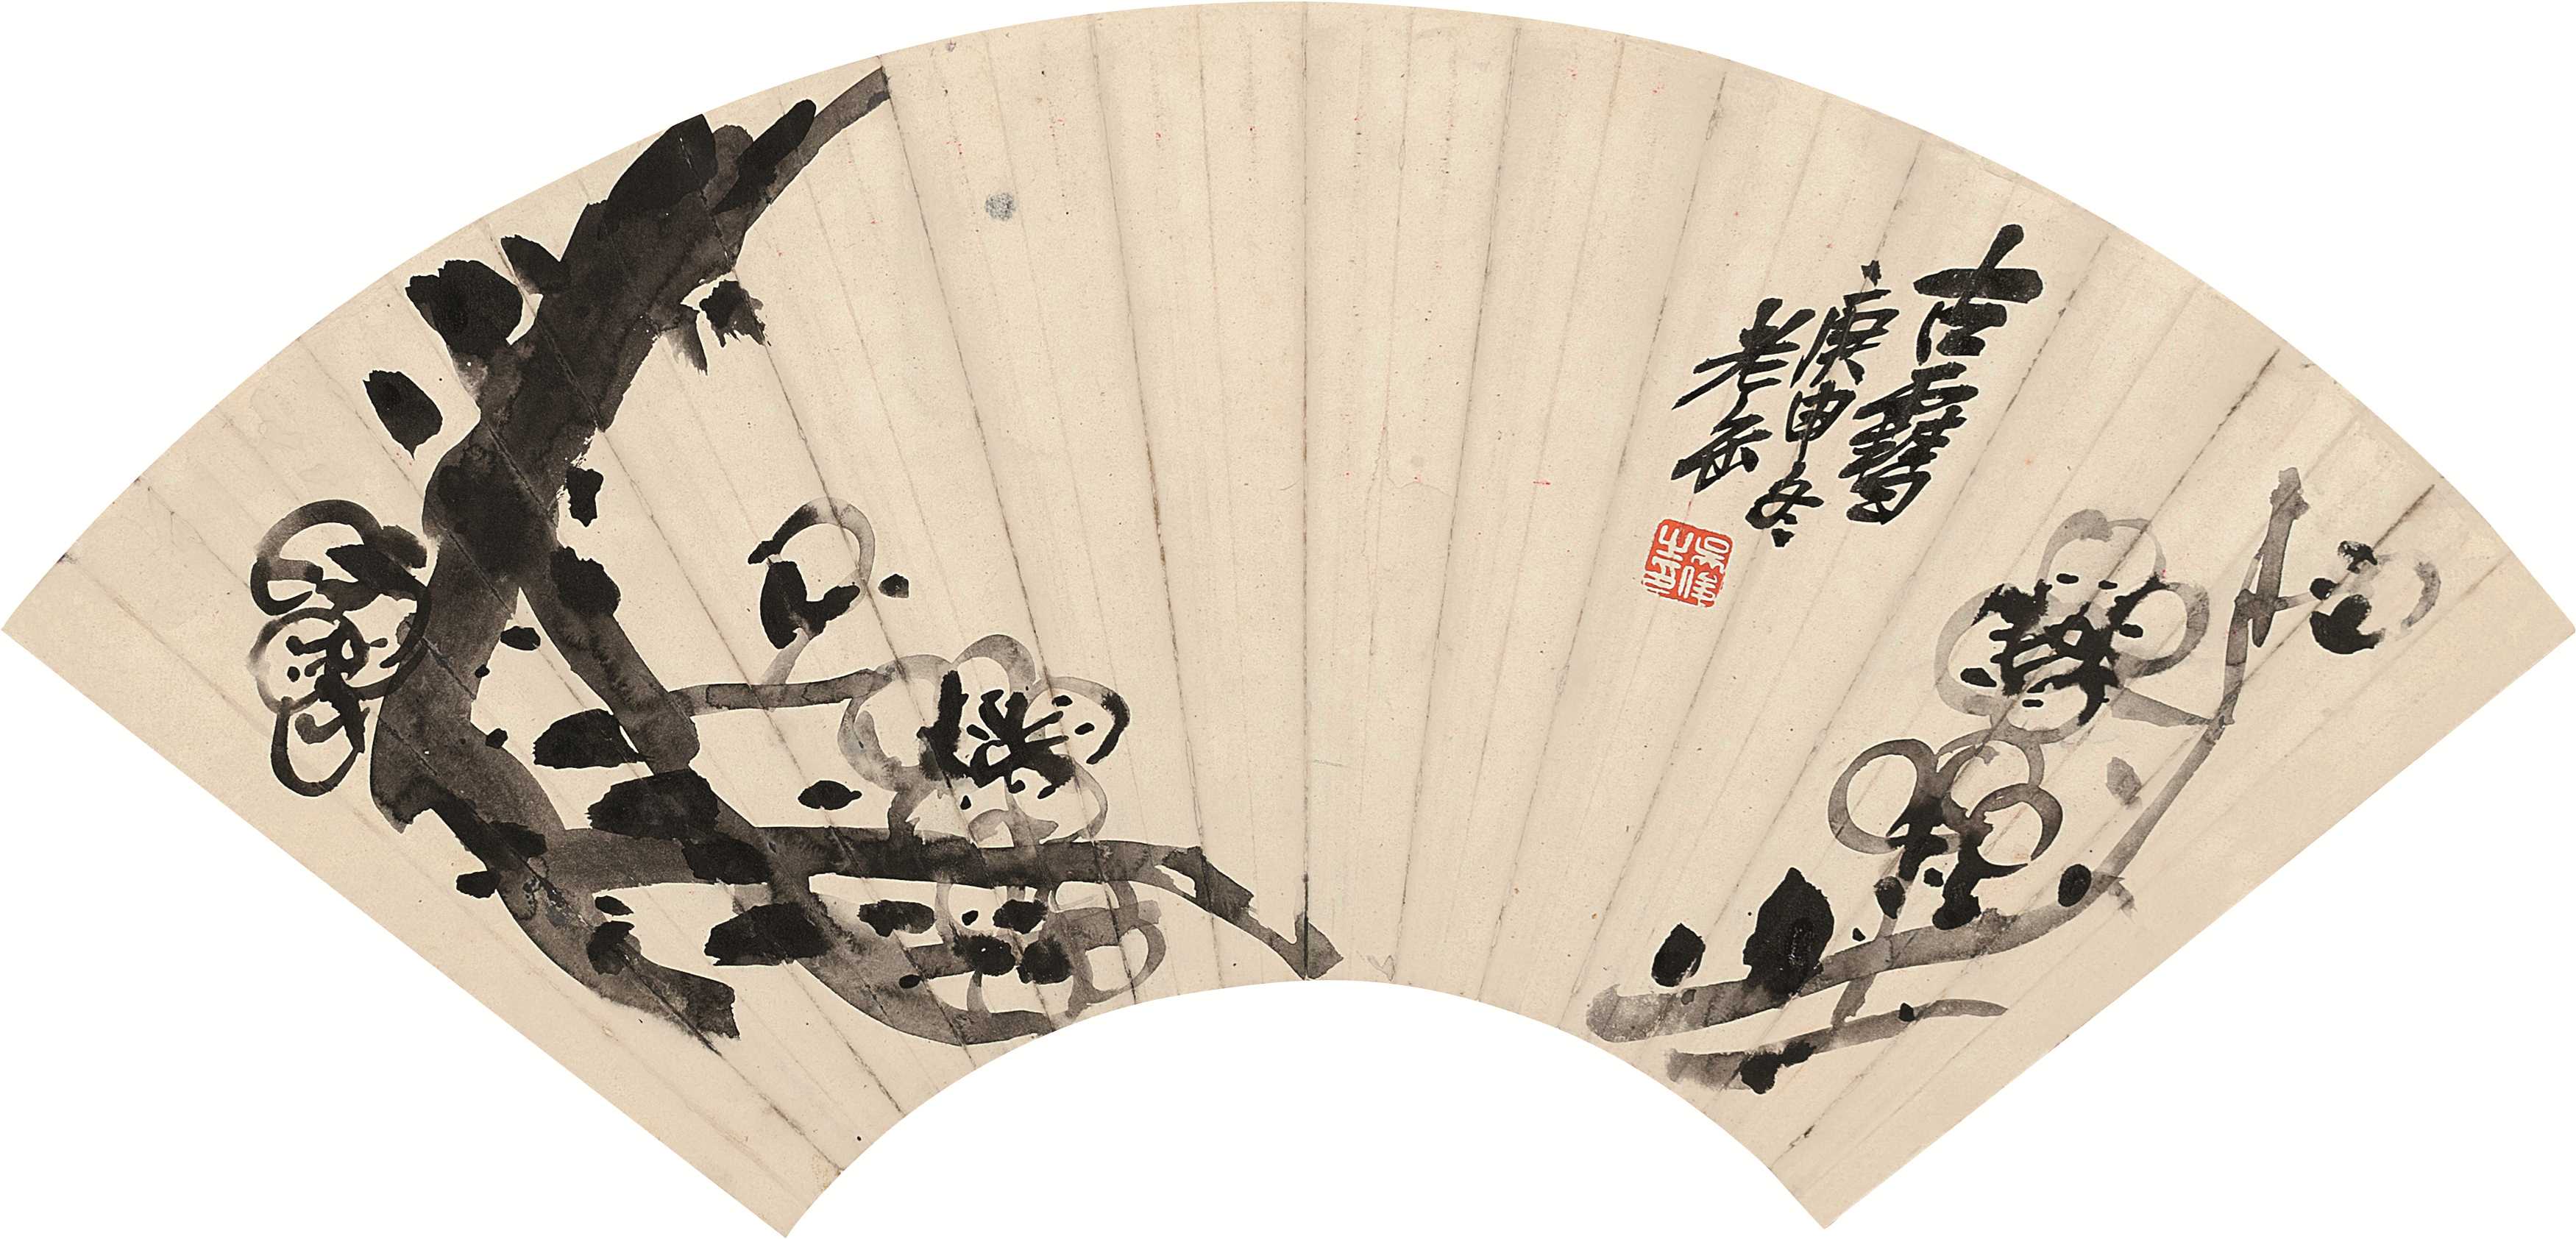 古雪
庚申冬
老缶
吳俊之印